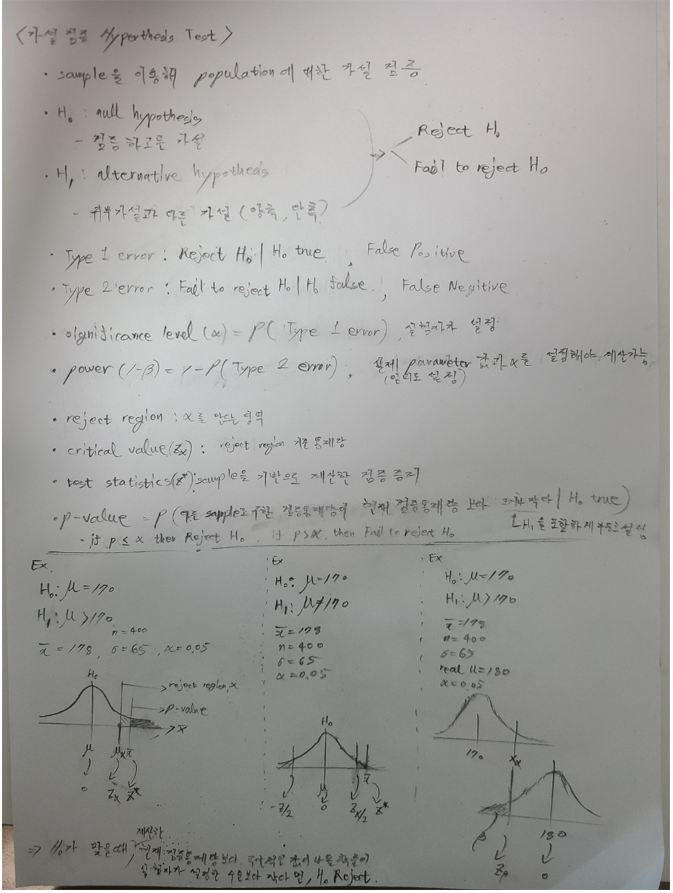 <가설 검증 Hyperthesis Test>
· sample을 이용해 population에 대한 가설 검증
· H₀ : null hypothesis
- 검증하고픈 가설
· H₁ : alternative hypothesis
- 귀무가설과 다른 가설 (양측, 단측)
Reject H₀
Fail to reject H₀
· Type 1 error : Reject H₀ | H₀ true , False Positive
· Type 2 error : Fail to reject H₀ | H₀ false , False Negitive
· significance level (α) = P( Type 1 error) , 실험자가 설정
· power (1-β) = 1 - P( Type 2 error) , 실제 parameter 값과 α를 설정해야 계산가능
(임의로 설정)
· reject region : α를 만드는 영역
· critical value(Zα) : reject region 기준 통계량
· test statistics(Z*) : sample을 기반으로 계산한 검증
· p-value = P ( sample 검증통계량이 현재 검증통계량 보다 | H₀ true)
H₁을 포함하게 부등호 설정
· if p ≤ α then Reject H₀, if p > α, then Fail to reject H₀
Ex.
H₀ : μ = 170
H₁ : μ > 170
n = 400
x̄ = 178, σ = 65, α = 0.05
H₀
reject region, α
p-value
x̄
μ μα x̄
0 Zα Z*
Ex
H₀ : μ = 170
H₁ : μ ≠ 170
x̄ = 178
n = 400
σ = 65
α = 0.05
H₀
x̄
-Z/2 0 Zα/2 Z*
Ex
H₀ : μ = 170
H₁ : μ > 170
x̄ = 178
n = 400
σ = 65
real μ = 180
α = 0.05
170 Xα
β 180
Zβ 0
⇒ H₀가 맞을때, 현재 검증통계량보다 값이 나올 확률이
계산한
실험자가 설정한 수준보다 작다면, H₀ Reject.